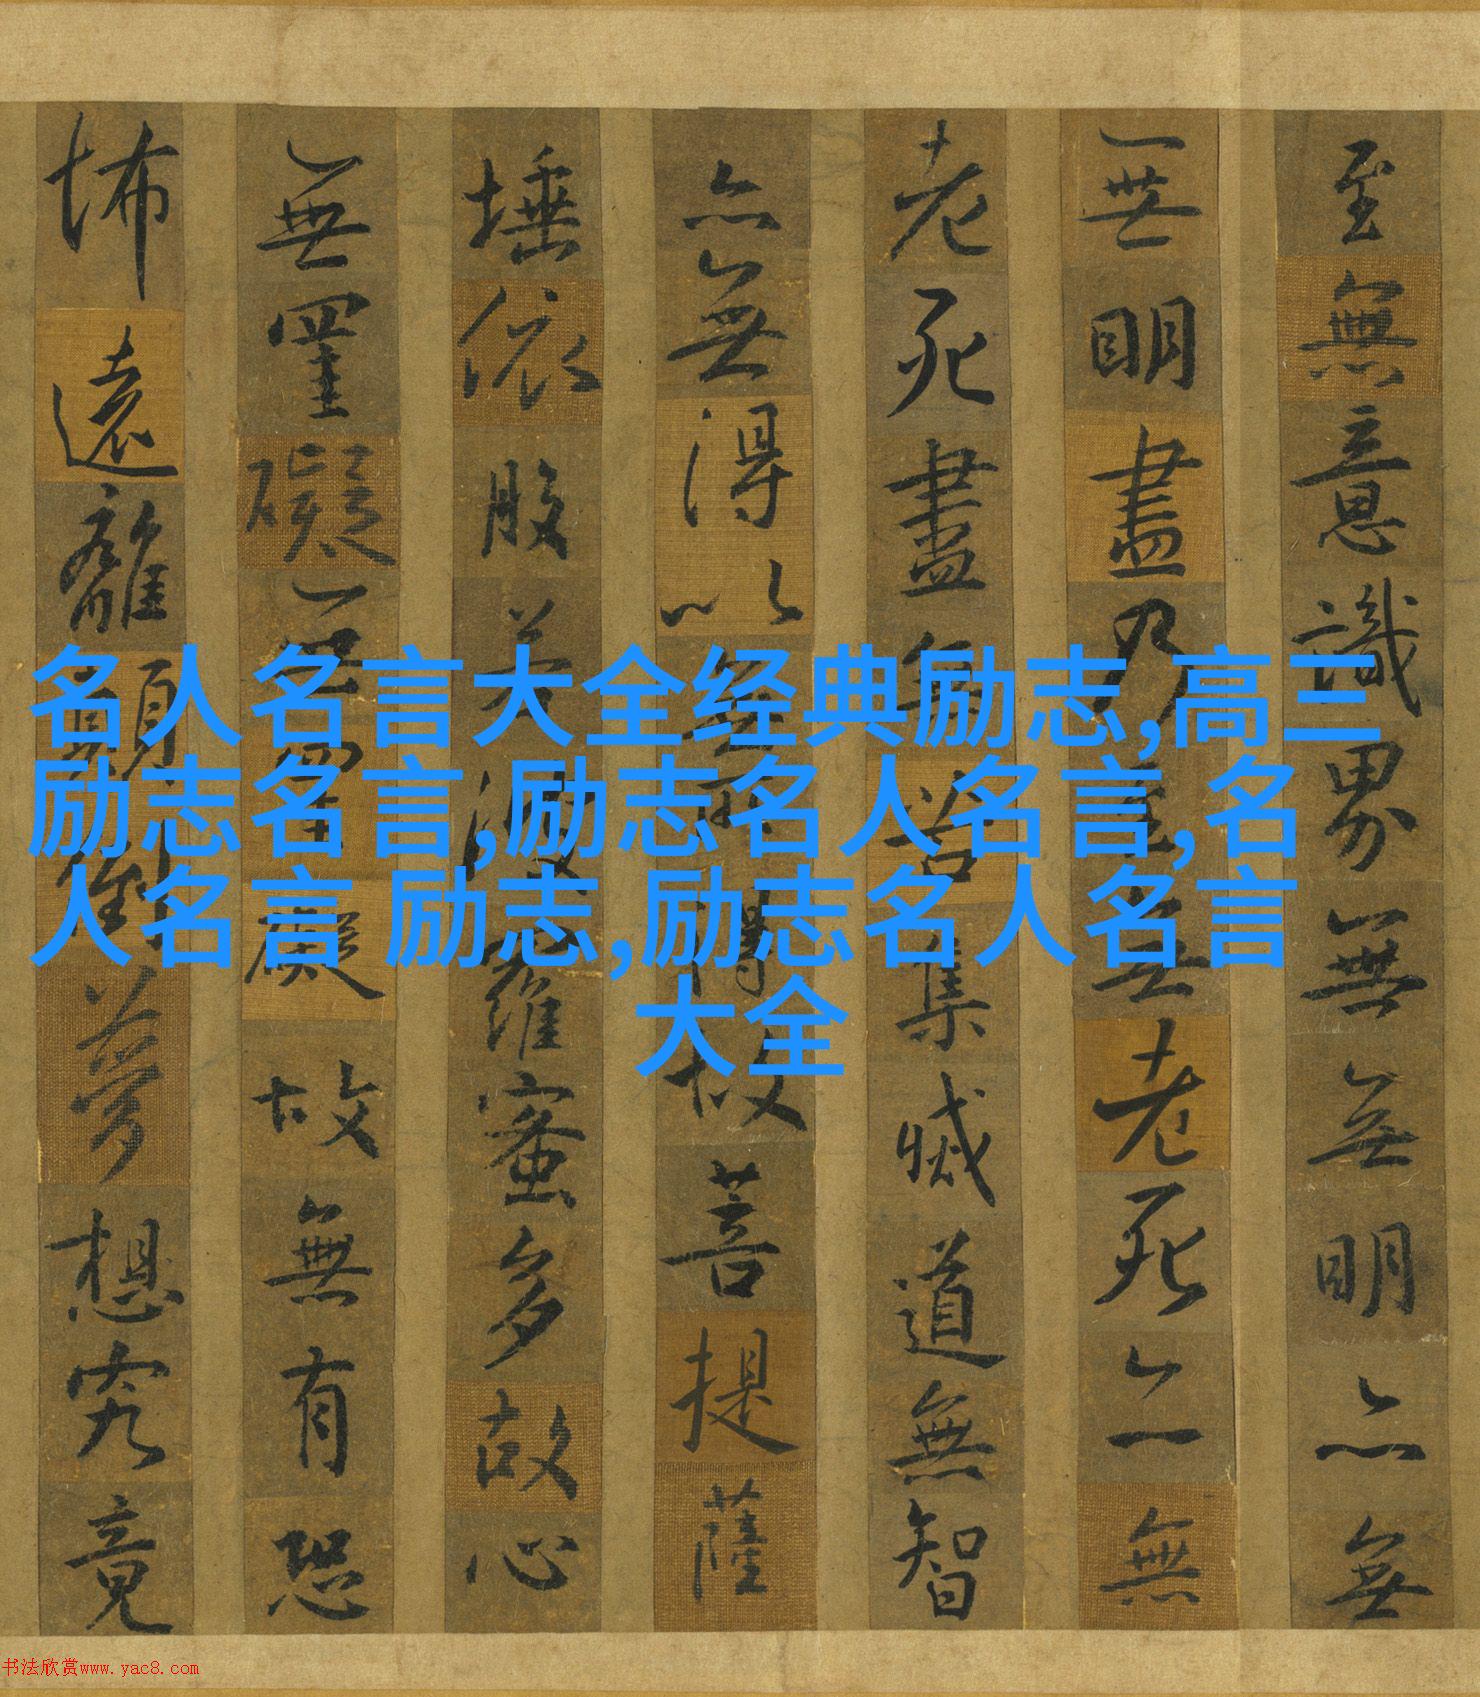 至無意識界無無明亦無
無明盡乃至無老死亦無
老死盡無苦集滅道無智
亦無得以無所得故菩提薩
埵依般若波羅蜜多故心
無罣礙無罣礙故無有恐
怖遠離顛倒夢想究竟
名人名言大全经典励志,高三
励志名言,励志名人名言,名
人名言 励志,励志名人名言
大全
书法欣赏www.yac8.com